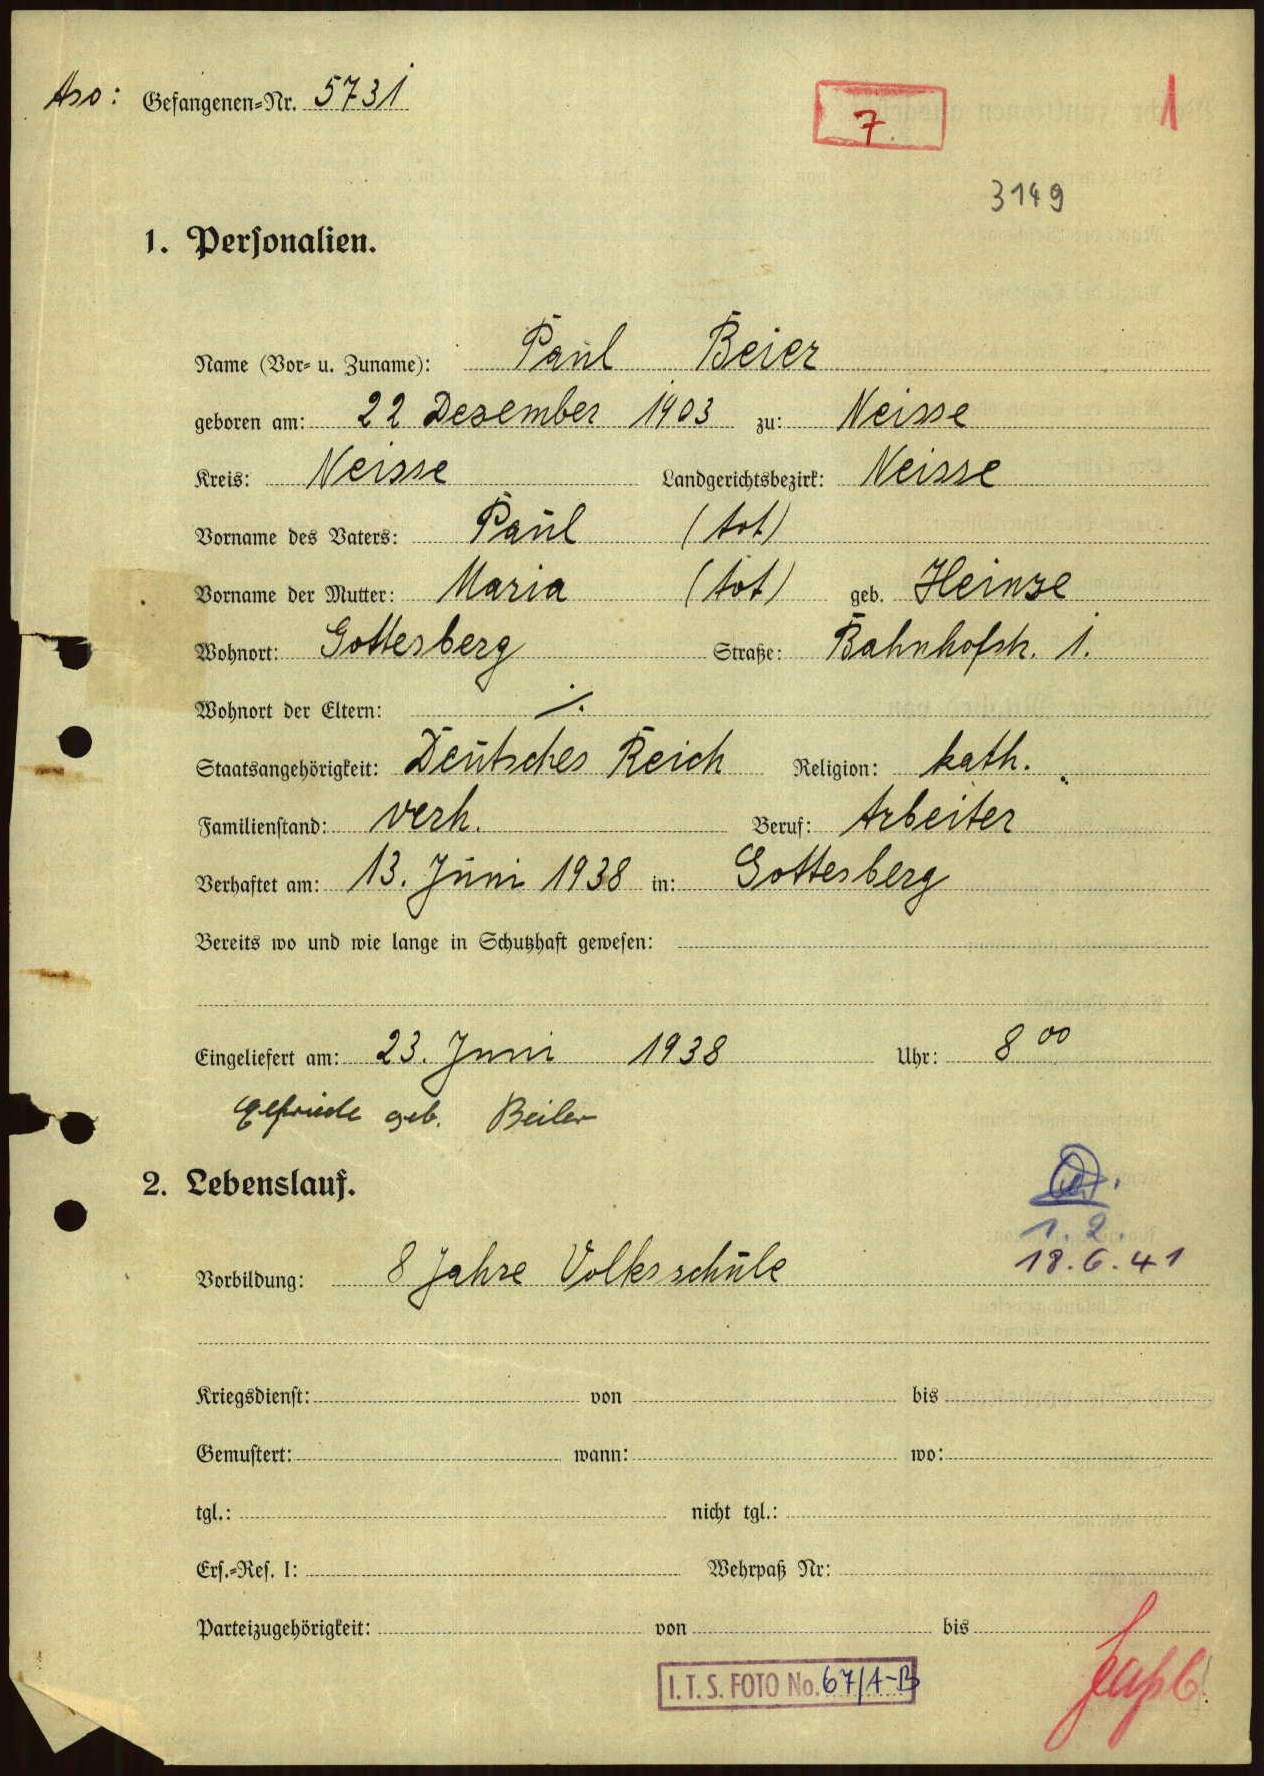 Aso: Gefangenen-Nr. 5731
7
1
3149
1. Personalien.
Name (Vor- u. Zuname): Paul Beier
geboren am: 22 Dezember 1903 zu: Neisse
Kreis: Neisse Landgerichtsbezirk: Neisse
Vorname des Vaters: Paul (tot)
Vorname der Mutter: Maria (tot) geb. Heinze
Wohnort: Gottesberg Straße: Bahnhofstr. 1.
Wohnort der Eltern: ·/.
Staatsangehörigkeit: Deutsches Reich Religion: kath.
Familienstand: verh. Beruf: Arbeiter
Verhaftet am: 13. Juni 1938 in: Gottesberg
Bereits wo und wie lange in Schutzhaft gewesen:
Eingeliefert am: 23. Juni 1938 Uhr: 8 00
geb. Beiler
2. Lebenslauf.
1. 2.
18.6.41
Vorbildung: 8 Jahre Volksschule
Kriegsdienst: von bis
Gemustert: wann: wo:
tgl.: nicht tgl.:
Ers.-Res. I: Wehrpaß Nr:
Parteizugehörigkeit: von bis
I.T.S. FOTO No. 67/A-B